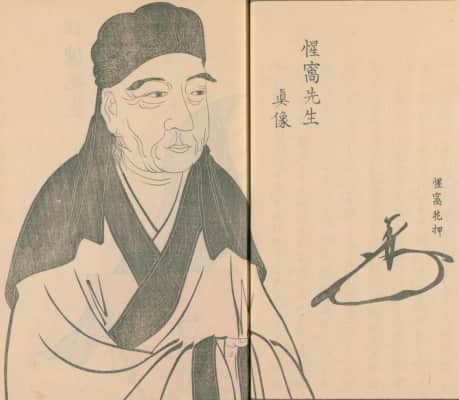 惺窩先生
眞像
惺窩花押